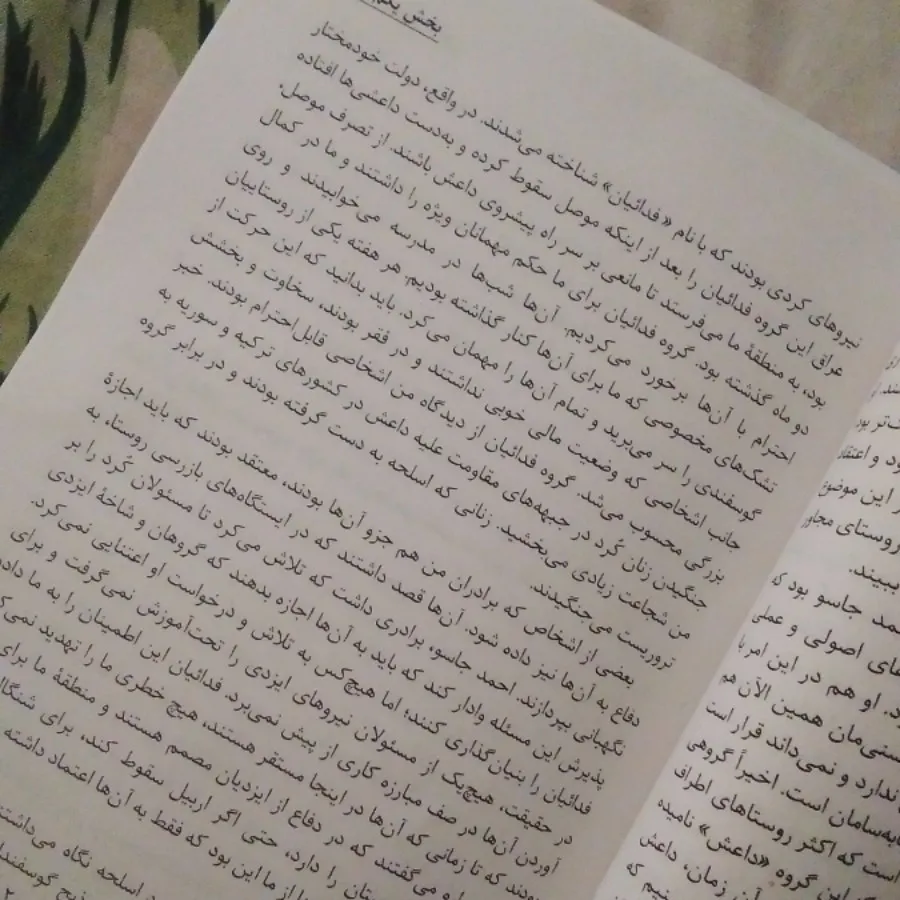 بخش یکم
نیروهای کردی بودند که با نام «فدائیان» شناخته می‌شدند. در واقع، دولت خودمختار
عراق این گروه فدائیان را بعد از اینکه موصل سقوط کرده و به‌دست داعشی‌ها افتاده
بود، به منطقهٔ ما می‌فرستد تا مانعی بر سر راه پیشروی داعش باشند. از تصرف موصل،
دو ماه گذشته بود. گروه فدائیان برای ما حکم مهمانان ویژه را داشتند و ما در کمال
احترام با آن‌ها برخورد می‌کردیم. آن‌ها شب‌ها در مدرسه می‌خوابیدند و روی
تشک‌های مخصوصی که ما برای آن‌ها کنار گذاشته بودیم. هر هفته یکی از روستاییان
گوسفندی را سر می‌برید و تمام آن‌ها را مهمان می‌کرد. باید بدانید که این حرکت از
جانب اشخاصی که وضعیت مالی خوبی نداشتند و در فقر بودند، سخاوت و بخشش
بزرگی محسوب می‌شد. گروه فدائیان از دیدگاه من اشخاصی قابل‌احترام بودند. خبر
جنگیدن زنان کُرد در جبهه‌های مقاومت علیه داعش در کشورهای ترکیه و سوریه به
من شجاعت زیادی می‌بخشید. زنانی که اسلحه به دست گرفته بودند و در برابر گروه
تروریست می‌جنگیدند.
بعضی از اشخاص که برادران من هم جزو آن‌ها بودند، معتقد بودند که باید اجازهٔ
دفاع به آن‌ها نیز داده شود. آن‌ها قصد داشتند که در ایستگاه‌های بازرسی روستا، به
نگهبانی بپردازند. احمد جاسو، برادری داشت که تلاش می‌کرد تا مسئولان کُرد را بر
پذیرش این مسئله وادار کند که باید به آن‌ها اجازه بدهند که گروهان و شاخهٔ ایزدی
فدائیان را بنیان‌گذاری کنند؛ اما هیچ‌کس به تلاش و درخواست او اعتنایی نمی‌کرد.
در حقیقت، هیچ‌یک از مسئولان نیروهای ایزدی را تحت‌آموزش نمی‌گرفت و برای
آوردن آن‌ها در صف مبارزه کاری از پیش نمی‌برد. فدائیان این اطمینان را به ما داده
بودند که تا زمانی که آن‌ها در اینجا مستقر هستند، هیچ خطری ما را تهدید نمی‌
و می‌گفتند که در دفاع از ایزدیان مصمم هستند و منطقهٔ ما برای
را دارد، حتی اگر اربیل سقوط کند، برای شنگال
از ما این بود که فقط به آن‌ها اعتماد داشته
اسلحه نگاه می‌داشتند
ذبح گوسفند
و اعتقاد
این موضوع
روستای مجاور
ببیند.
جاسو بود که
اصولی و عملی
او هم در این امر با
همین الآن هم
ندارد و نمی‌داند قرار است
است. اخیراً گروهی
است که اکثر روستاهای اطراف
این گروه «داعش» نامیده
آن زمان، داعش